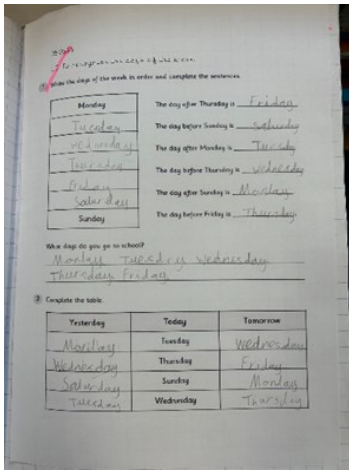 1 Write the days of the week in order and complete the sentences.
Monday
Tuesday
wednesday
Thursday
Friday
Saturday
Sunday
The day after Thursday is Friday
The day before Sunday is Saturday
The day after Monday is Tuesday
The day before Thursday is wednesday
The day after Sunday is Monday
The day before Friday is Thursday
What days do you go to school?
Monday Tuesday Wednesday
Thursday Friday
2 Complete the table.
Yesterday Today Tomorrow
Monday Tuesday Wednesday
Wednesday Thursday Friday
Saturday Sunday Monday
Tuesday Wednesday Thursday